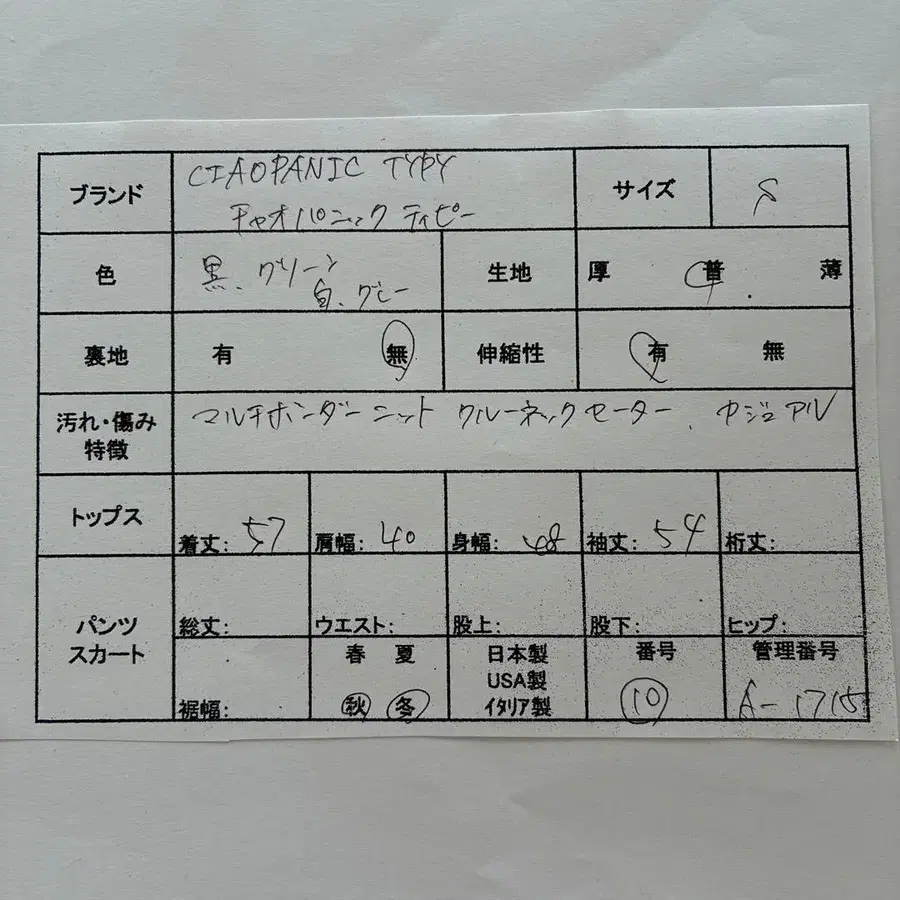 ブランド CIAOPANIC TYPY サイズ S
チャオパニック ティピー
色 黒、グリーン 生地 厚 普 薄
白、グレー
裏地 有 無 伸縮性 有 無
汚れ・傷み マルチボーダーニット クルーネックセーター、カジュアル
特徴
トップス 着丈: 57 肩幅: 40 身幅: 48 袖丈: 54 裄丈:
パンツ 総丈: ウエスト: 股上: 股下: ヒップ:
スカート
裾幅:
春 夏
秋 冬
日本製
USA製
イタリア製
番号
10
管理番号
A-1715